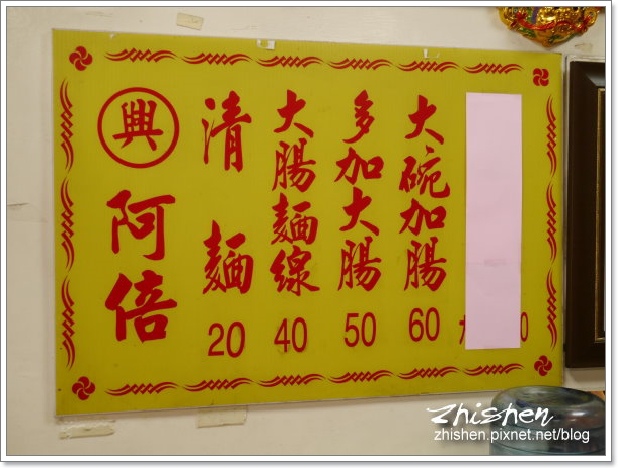 興
阿倍
清麵
20
大腸麵線
40
多加大腸
50
大碗加腸
60
0
Zhishen
zhishen.pixnet.net/blog